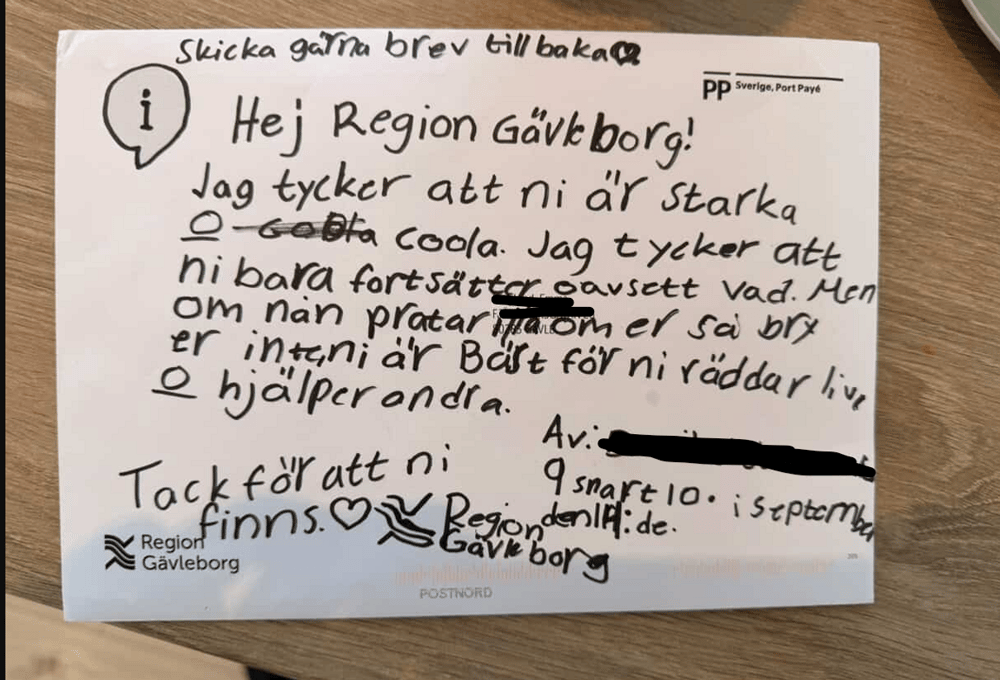 Skicka gärna brev tillbaka
PP Sverige, Port Payé
i
Hej Region Gävkborg!
Jag tycker att ni är starka
O coola. Jag tycker att
ni bara fortsätter oavsett vad. Men
om nån pratar illa om er så bry
er inte, ni är Bäst för ni räddar live
O hjälper andra.
Av:
9 snart 10. i september
den 14:de.
Tack för att ni
finns.
Region
Gävkborg
Region
Gävleborg
POSTNORD